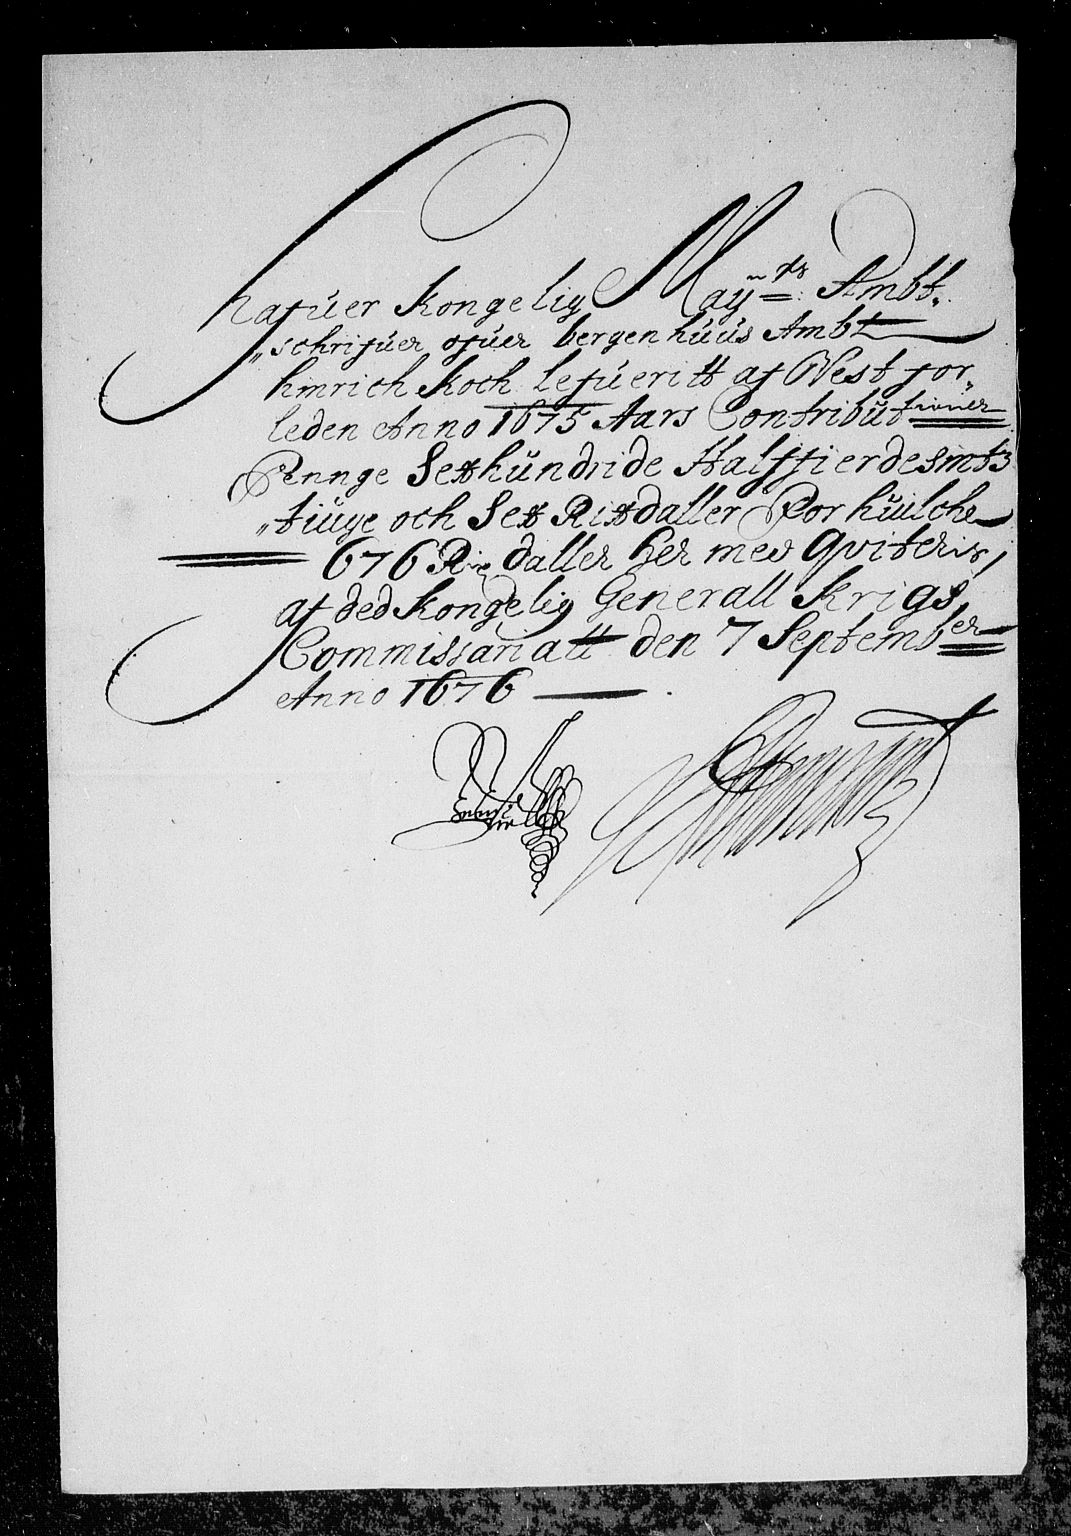 hafuer Kongelig Mayts Ambt„
„schrifuer ofuer bergenhuus Ambt
hinrich Koch lefueritt af Vest for„
leden Anno 1675 Aars Contributioner
Pennge Sexhundride Halffierdesints
„tiuge och Sex Rixdaller For huilche
676 Rix daller her med Qviteris,
af ded Kongelig Generall Krigs
Commissariatt den 7 September
Anno 1676